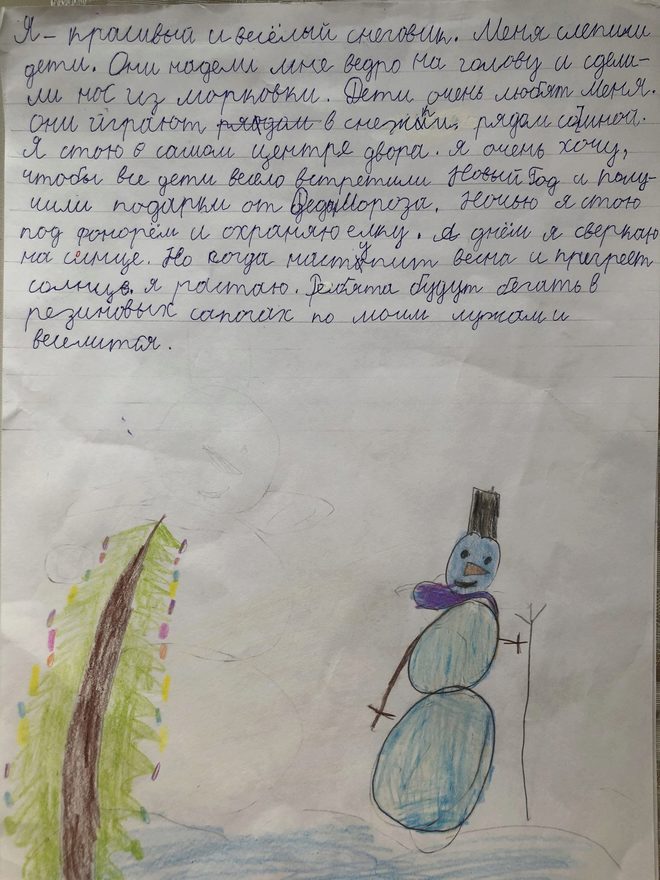 Я - красивый и весёлый снеговик. Меня слепили
дети. Они надели мне ведро на голову и сдела-
ли нос из морковки. Дети очень любят меня.
Они играют рядом в снежки рядом со мной.
Я стою в самом центре двора. Я очень хочу,
чтобы все дети весело встретили Новый Год и полу-
чили подарки от Деда Мороза. Ночью я стою
под фонорём и охраняю елку. А днём я сверкаю
на синце. Но когда наступит весна и прегреет
солнце, я растаю. Ребята будут бегать в
резиновых сапогах по моим лужам и
веселится.